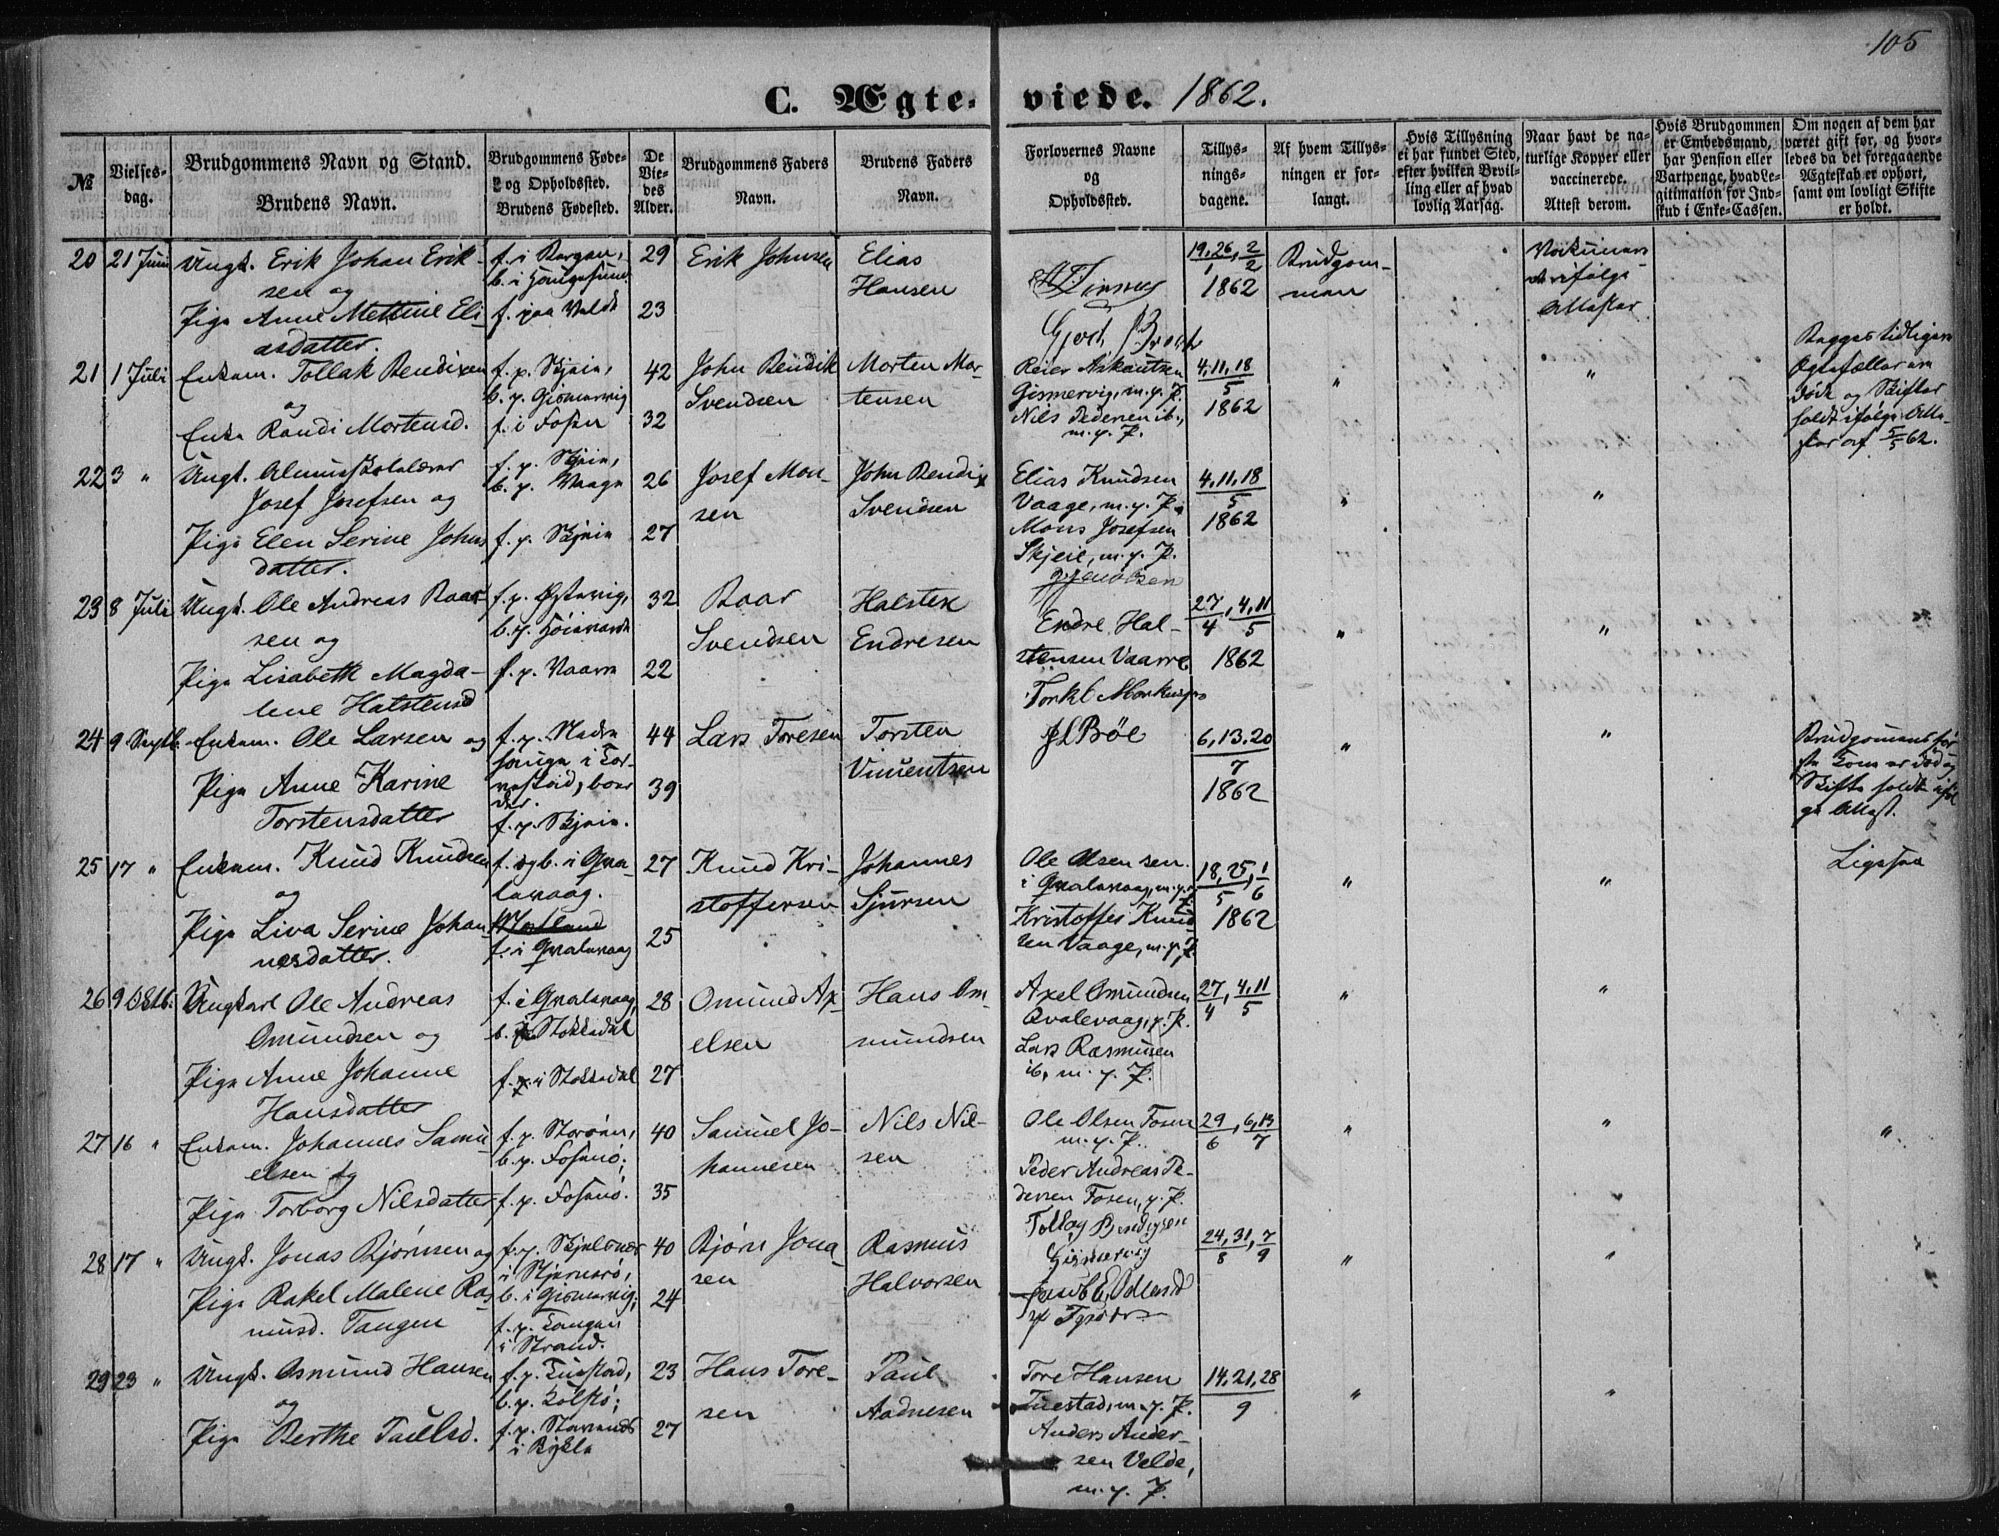 105
C. Ægteviede. 1862.
№
Vielsesdag.
Brudgommens Navn og Stand.
Brudens Navn.
Brudgommens Fødeog Opholdssted.
Brudens Fødested.
De Viedes Alder.
Brudgommens Faders Navn.
Brudens Faders Navn.
Forlovernes Navne og Opholdssted.
Tillysningsdagene.
Af hvem Tillysningen er forlangt.
Hvis Tillysning ei har fundet Sted, efter hvilken Bevilling eller af hvad lovlig Aarsag.
Naar havt de naturlige Kopper eller vaccinerede. Attest derom.
Hvis Brudgommen er Embedsmand, har Pension eller Vartpenge, hvad Legitimation for Indskud i Enke-Cassen.
Om nogen af dem har været gift før, og hvorledes da det foregaaende Ægteskab er ophørt, samt om lovligt Skifte er holdt.
20 21 Juni Ungk. Erik Johan Erik-
sen og
Pige Anne Mettine Eli-
asdatter.
f. i Bergen,
b. i Haugesund
f. paa Valde
29
23
Erik Johnsen
Elias
Hansen
19, 26, 2
1 2
1862
Brudgom-
men
Vakcineret
ifølge
Attester
21 1 Juli Enkem. Tollak Bendixen
og
Enke Randi Mortensd.
f. p. Skjeie,
b. p. Gismervig
f. i Fosen
42
32
John Bendik
Svendsen
Morten Mor-
tensen
Reier Askautsen
Gismervig, m. p. P.
Nils Pedersen ib.,
m. p. P.
4, 11, 18
5
1862
"
"
Begges tidligere
Ægtefæller ere
døde og Skifter
holdt ifølge Atte-
ster af 5/5 62.
22 3 " Ungk. Almueskolelærer
Josef Josefsen og
Pige Elen Serine Johns
datter.
f. p. Skjeie,
b. p. Vaage
f. p. Skjeie
26
27
Josef Mon-
sen
John Bendix
Svendsen
Elias Knudsen
Vaage, m. p. P.
Mons Josefsen
Skjeie, m. p. P.
4, 11, 18
5
1862
"
"
23 8 Juli Ungk. Ole Andreas Baar-
sen og
Pige Lisabeth Magda-
lene Halstensd
f. p. Øgtevig,
b. p. Høievarde
f. p. Vaarre
32
22
Baar
Svendsen
Halsten
Endresen
Endre Hal-
stensen Vaarre
Torkl Markusen
27, 4, 11
4 5
1862
"
"
24 9 Septb. Enkem. Ole Larsen og
Pige Anne Karine
Torstensdatter
f. p. Nedre
hauge i Tor-
vestad, boer
der.
f. p. Skjeie.
44
39
Lars Toresen
Torsten
Vincentsen
J L Bøe
6, 13, 20
7
1862
"
"
Brudgomens før-
ste Kone er død og
Skifte holdt iføl
ge Attest.
25 17 " Enkem. Knud Knudsen
og
Pige Liva Serine Johan-
nesdatter.
f. og b. i Qva-
levaag.
f. i Qvalevaag
27
25
Knud Kri-
stoffersen
Johannes
Sjursen
Ole Olsen sen.
i Qvalevaag, m. p. P.
Kristoffer Knud
sen Vaage, m. p. P.
18, 25, 1
5 6
1862
"
"
Ligesaa
26 9 Oktb. Ungkarl Ole Andreas
Omundsen og
Pige Anne Johanne
Hansdatter
f. i Qvalevaag,
b. i Stokkedal
f. i Stokkedal
28
27
Omund Ax-
elsen
Hans Om-
mundsen
Axel Omundsen
Qvalevaag, p. P.
Lars Rasmusen
ib, m. p. P.
27, 4, 11
4 5
"
"
27 16 " Enkem. Johannes Samu-
elsen og
Pige Torborg Nilsdatter
f. p. Storøen,
b. p. Fosenø;
f. p. Fosenø.
40
35
Samuel Jo-
hannesen
Nils Nil-
sen
Ole Olsen Fosen
m. p. P.
Peder Andreas Pe-
dersen Fosen, p. P.
29, 6, 13
6 7
"
"
"
28 17 " Ungk. Jonas Bjørnsen og
Pige Rakel Malene Ras
musd. Tangen
f. p. Skjelsnæs
i Stjernerø,
b. i Gismervig;
f. p. Tangen
i Strand.
40
24
Bjørn Jona-
sen
Rasmus
Halvorsen
Tollag Bendigsen
Gismervig
24, 31, 7
8 9
"
"
29 23 " Ungk. Osmund Hansen
og
Pige Berthe Paulsd.
f. p. Tuestad,
b. p. Kolstø;
f. p. Stavenes
i Bykle
23
27
Hans Tore-
sen
Paul
Aadnesen
Tore Hansen
Tuestad, m. p. P.
Anders Ander-
sen Velde,
m. p. P.
14, 21, 28
9
"
"